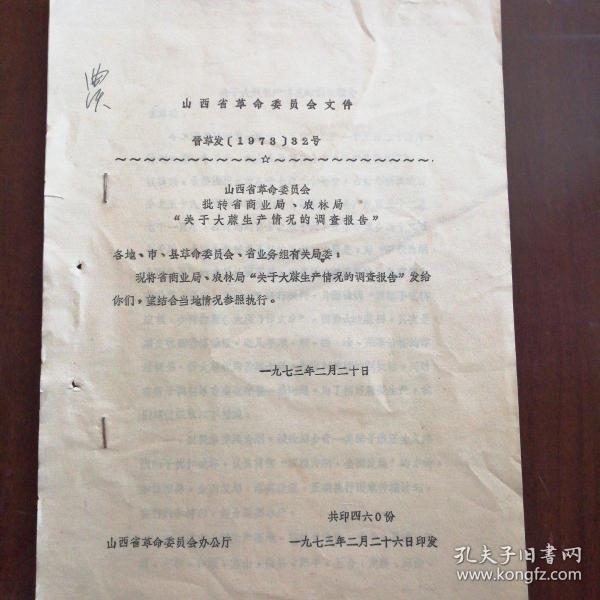 山西省革命委员会文件
晋革发〔1973〕32号
山西省革命委员会
批转省商业局、农林局
“关于大麻生产情况的调查报告”
各地、市、县革命委员会、省业务组有关局委：
现将省商业局、农林局“关于大麻生产情况的调查报告”发给
你们，望结合当地情况参照执行。
一九七三年二月二十日
共印四六0份
山西省革命委员会办公厅 一九七三年二月二十六日印发
孔夫子旧书网
www.kongfz.com